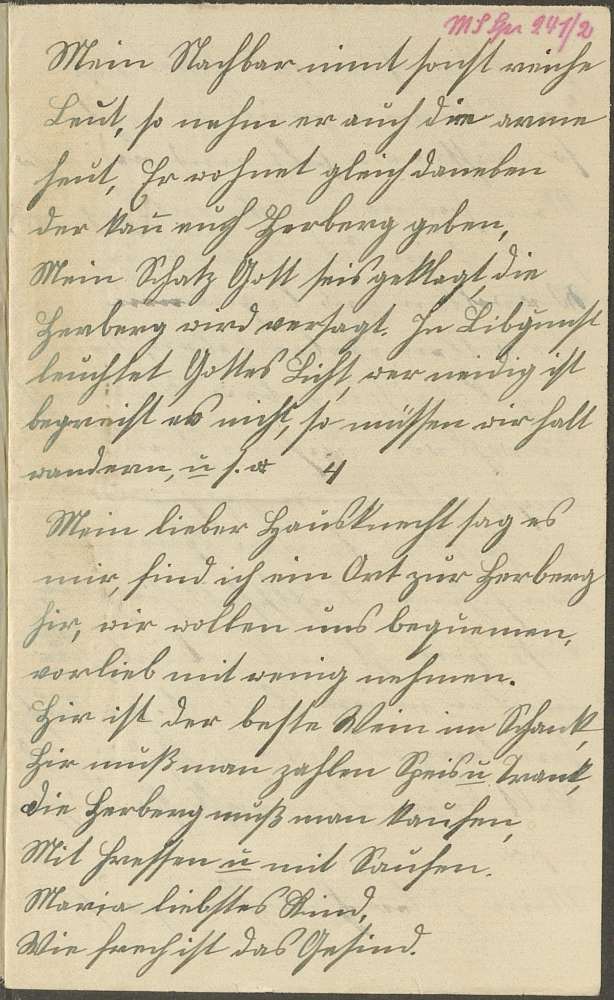 MS Spr 241/2
Mein Nachbar nimt sonst reiche
Leut, so nehm er auch die arme
heut, Er wohnet gleich daneben
der kan̄ euch Herberg geben,
Mein Schatz Gott seis geklagt, die
Herberg wird versagt. In
leuchtet Gottes Licht, wer neidig ist
begreift es nicht, so müssen wir halt
wandern, u s. w 4
Mein lieber Hausknecht sag es
mir, find ich ein Ort zur Herberg
hir, wir wollen uns bequemen,
vorlieb mit wenig nehmen.
Hir ist der beste Wein im Schank,
Hir muß man zahlen Speis u Trank,
die Herberg muß man kaufen,
Mit Fressen u mit Saufen.
Maria liebstes Kind,
Wie frech ist das Gesind.